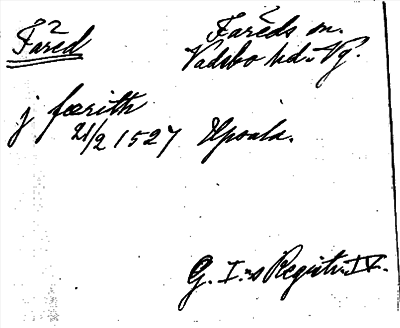 Fåred
Fåreds sn.
Vadsbo hd. Vg.
j færith
21/2 1527 Upsala.
G. I:s Registr. IV.